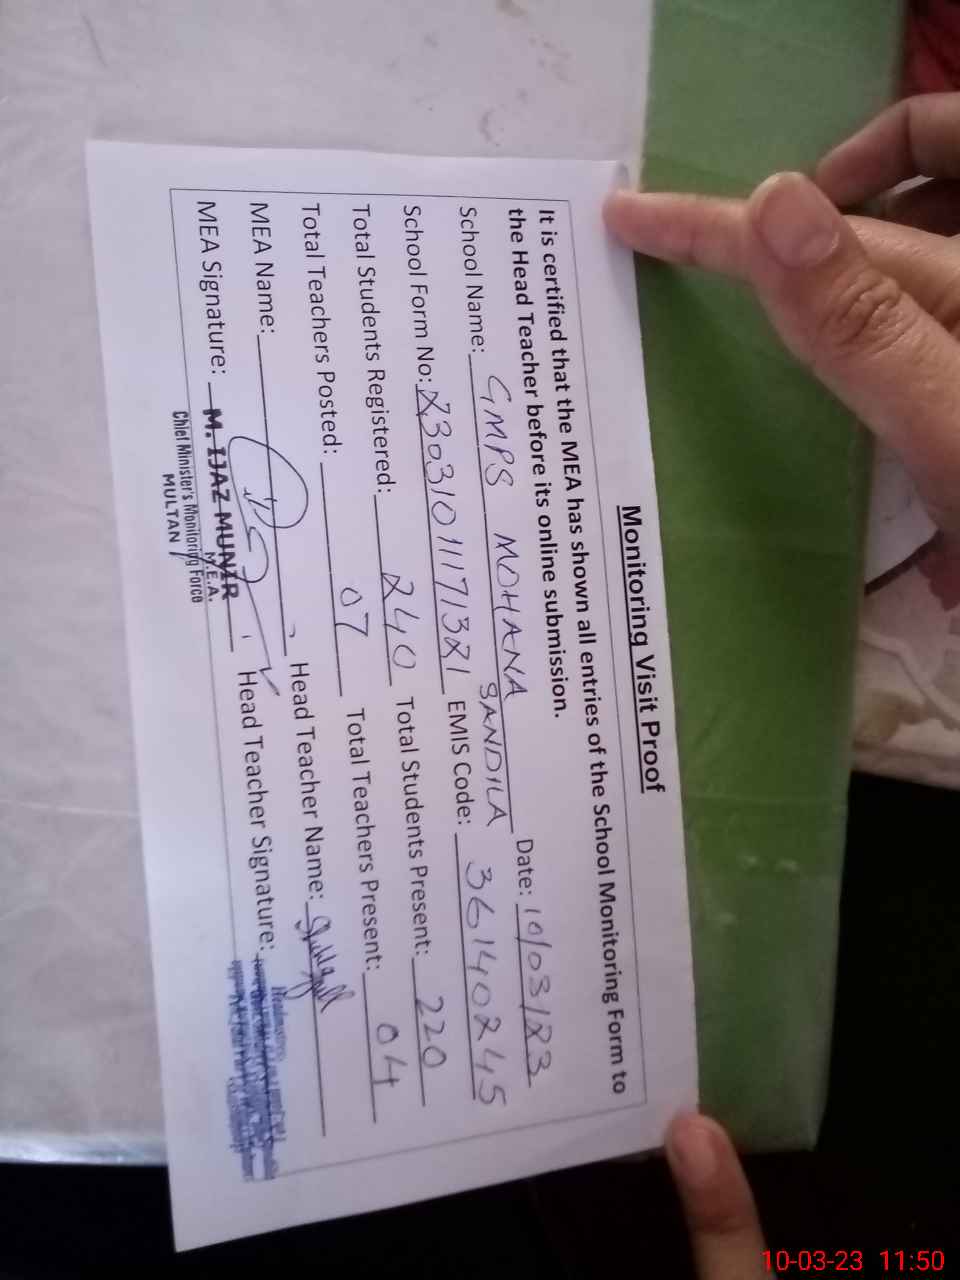 Monitoring Visit Proof
It is certified that the MEA has shown all entries of the School Monitoring Form to
the Head Teacher before its online submission.
School Name: GMPS MOHANA SANDILA Date: 10/03/23
School Form No: 23031011171321 EMIS Code: 36140245
Total Students Registered: 240 Total Students Present: 220
Total Teachers Posted: 07 Total Teachers Present: 04
MEA Name: Head Teacher Name:
MEA Signature: Head Teacher Signature:
M. IJAZ MUNIR
M.E.A.
Chief Minister's Monitoring Force
MULTAN
Headmistress
10-03-23 11:50